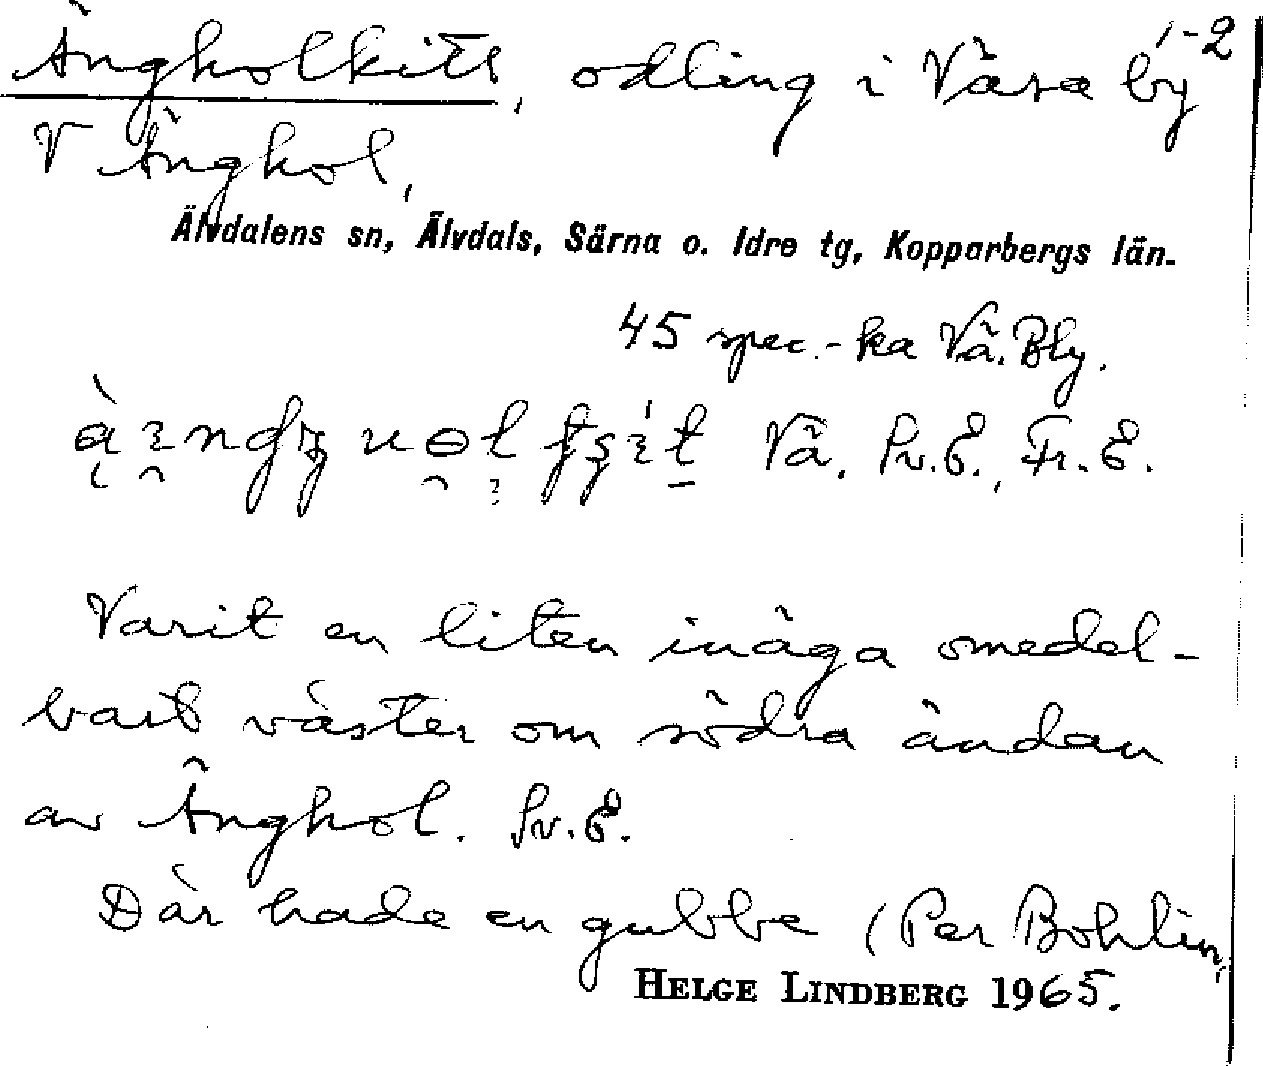 Ängholkitt, odling i Väsa by 1-2
V Änghol,
Älvdalens sn, Älvdals, Särna o. Idre tg, Kopparbergs län.
45 spec.-ka Vä. Bly.
Vä. Sv.E., Fr.E.
Varit en liten inäga omedel-
bart väster om södra ändan
av Änghol. Sv.E.
Där hade en gubbe (Per Bohlin,
HELGE LINDBERG 1965.